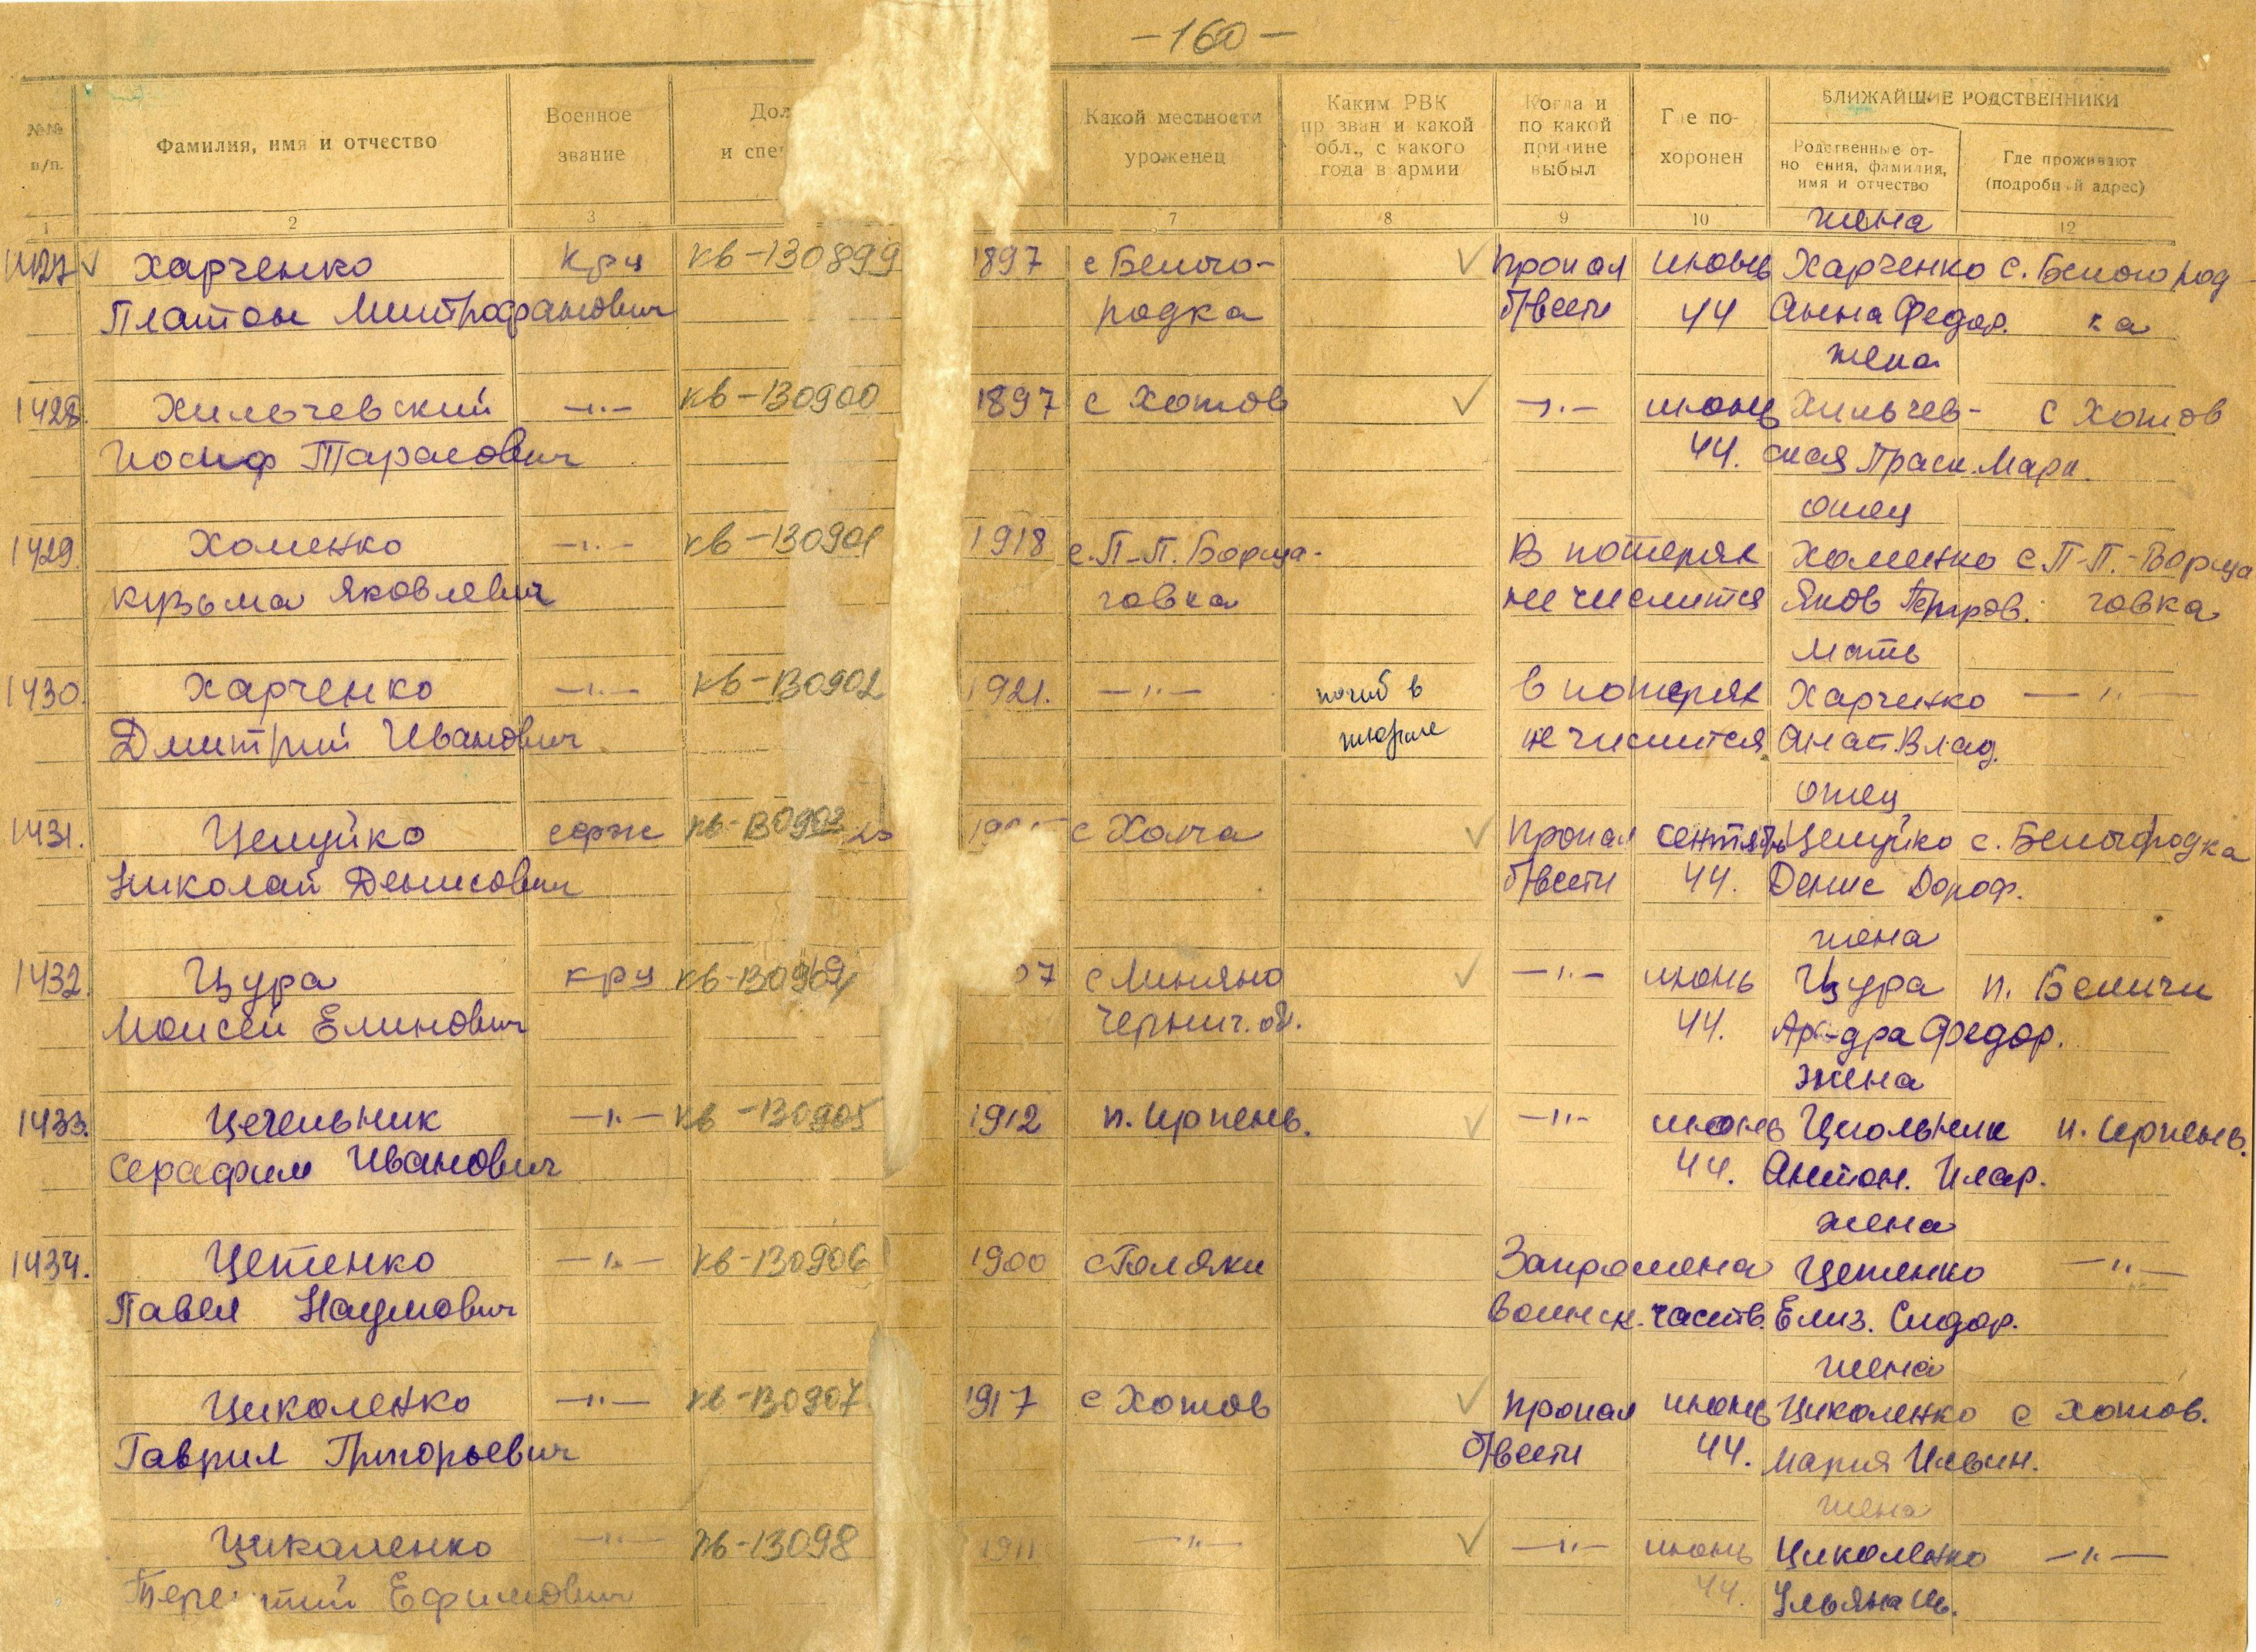 -160-
№№ п/п.
Фамилия, имя и отчество
Военное звание
Дол
и спец
Какой местности уроженец
Каким РВК пр зван и какой обл., с какого года в армии
Когда и по какой причине выбыл
Где похоронен
БЛИЖАЙШИЕ РОДСТВЕННИКИ
Родственные отно ения, фамилия, имя и отчество
Где проживают (подробный адрес)
1 2 3 7 8 9 10 12
жена
1427 Харченко крц кв-130899 1897 с Белого- пропал июнь Харченко с. Белогород-
Платон Митрофанович родка б/вести 44 Анна Федор. ка
жена
1428. Хильчевский -"- кв-130900 1897 с Хотов -"- июнь Хильчев- с Хотов
Иосиф Тарасович 44. ская Праск. Марк.
отец
1429. Хоменко -"- кв-130901 1918 с. П-П. Борща- В потерях Хоменко с П-П.-Борща
Кузьма Яковлевич говка не числится Яков Петров. говка
мать
1430. Харченко -"- кв-130902 1921. -"- погиб в в потерях Харченко -"-
Дмитрий Иванович тюрьме не числится Анат. Влад.
отец
1431. Целуйко серж кв-130903 с Хотча пропал сентябрь Целуйко с. Белогородка
Николай Денисович б/вести 44. Денис Дороф.
жена
1432. Цура крц кв-130904 07 с -"- июнь Цура п. Беличи
Моисей Елинович Черниг. об. 44. Федор.
жена
1433. Цечельник -"- кв-130905 1912 п. Ирпень. -"- июнь п. Ирпень.
Серафим Иванович 44. Антон. Илар.
жена
1434. Цетенко -"- кв-130906 1900 с Запрошена Цетенко -"-
Павел Наумович воинск. часть. Елиз. Сидор.
жена
Циколенко -"- кв-130907 1917 с Хотов пропал июнь Циколенко с Хотов.
Гаврил Григорьевич б/вести 44. Мария Ильин.
жена
Цикаленко -"- кв-13098 1911 -"- -"- июнь Циколенко -"-
Ефимович 44. Ульяна Ив.